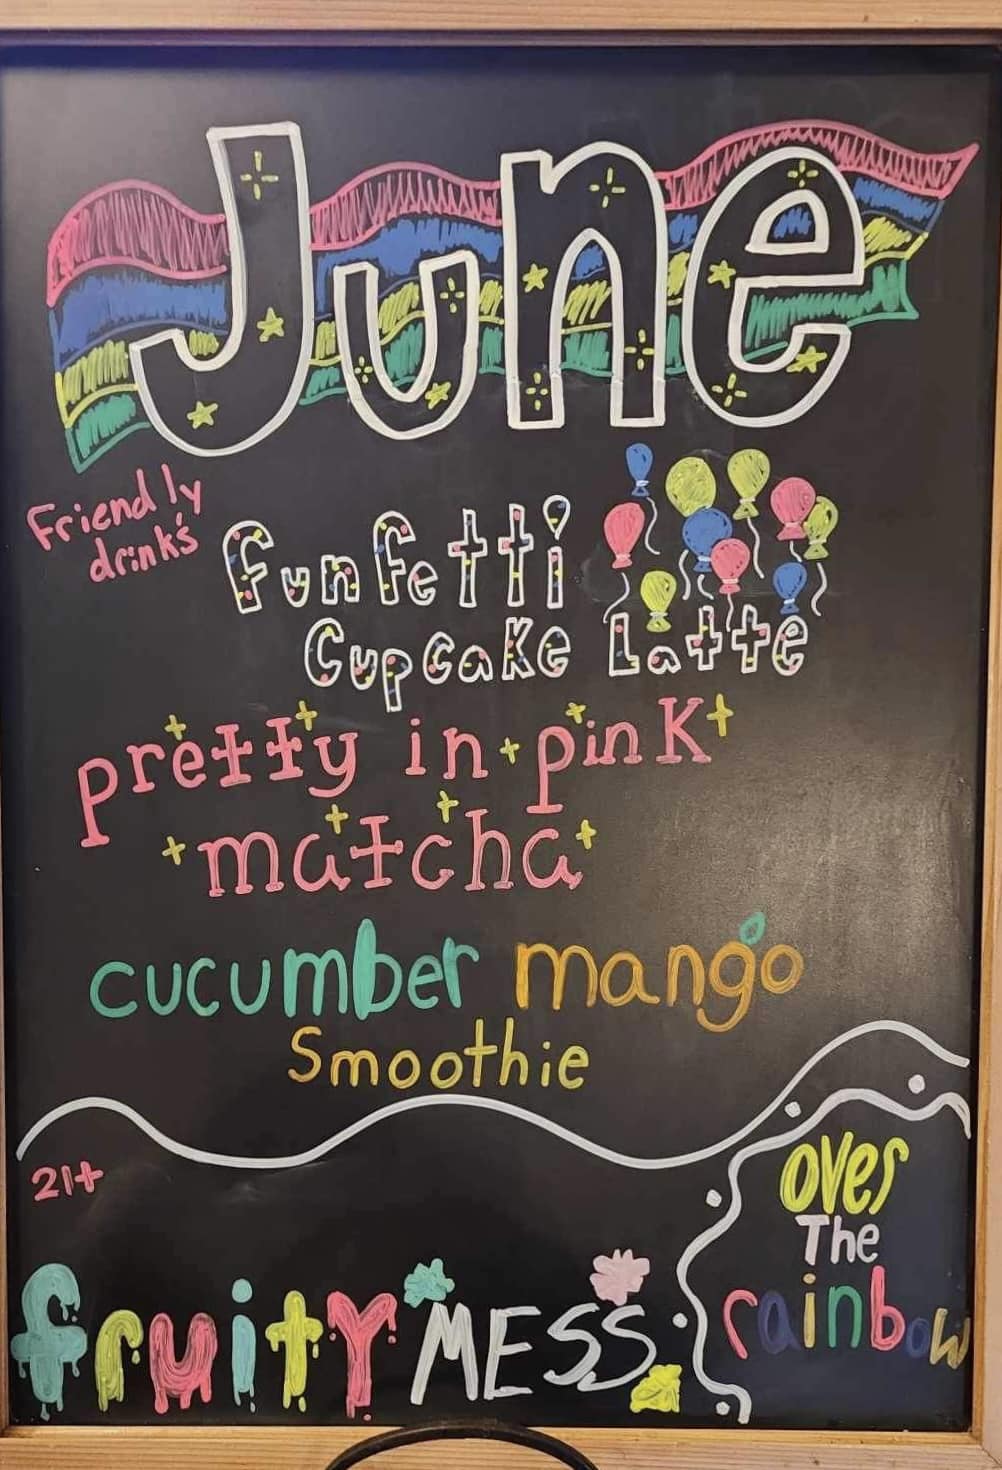 June
Friendly
drink's
Funfetti
Cupcake Latte
pretty in pink
matcha
cucumber mango
Smoothie
21+
fruity MESS
over
The
rainbow